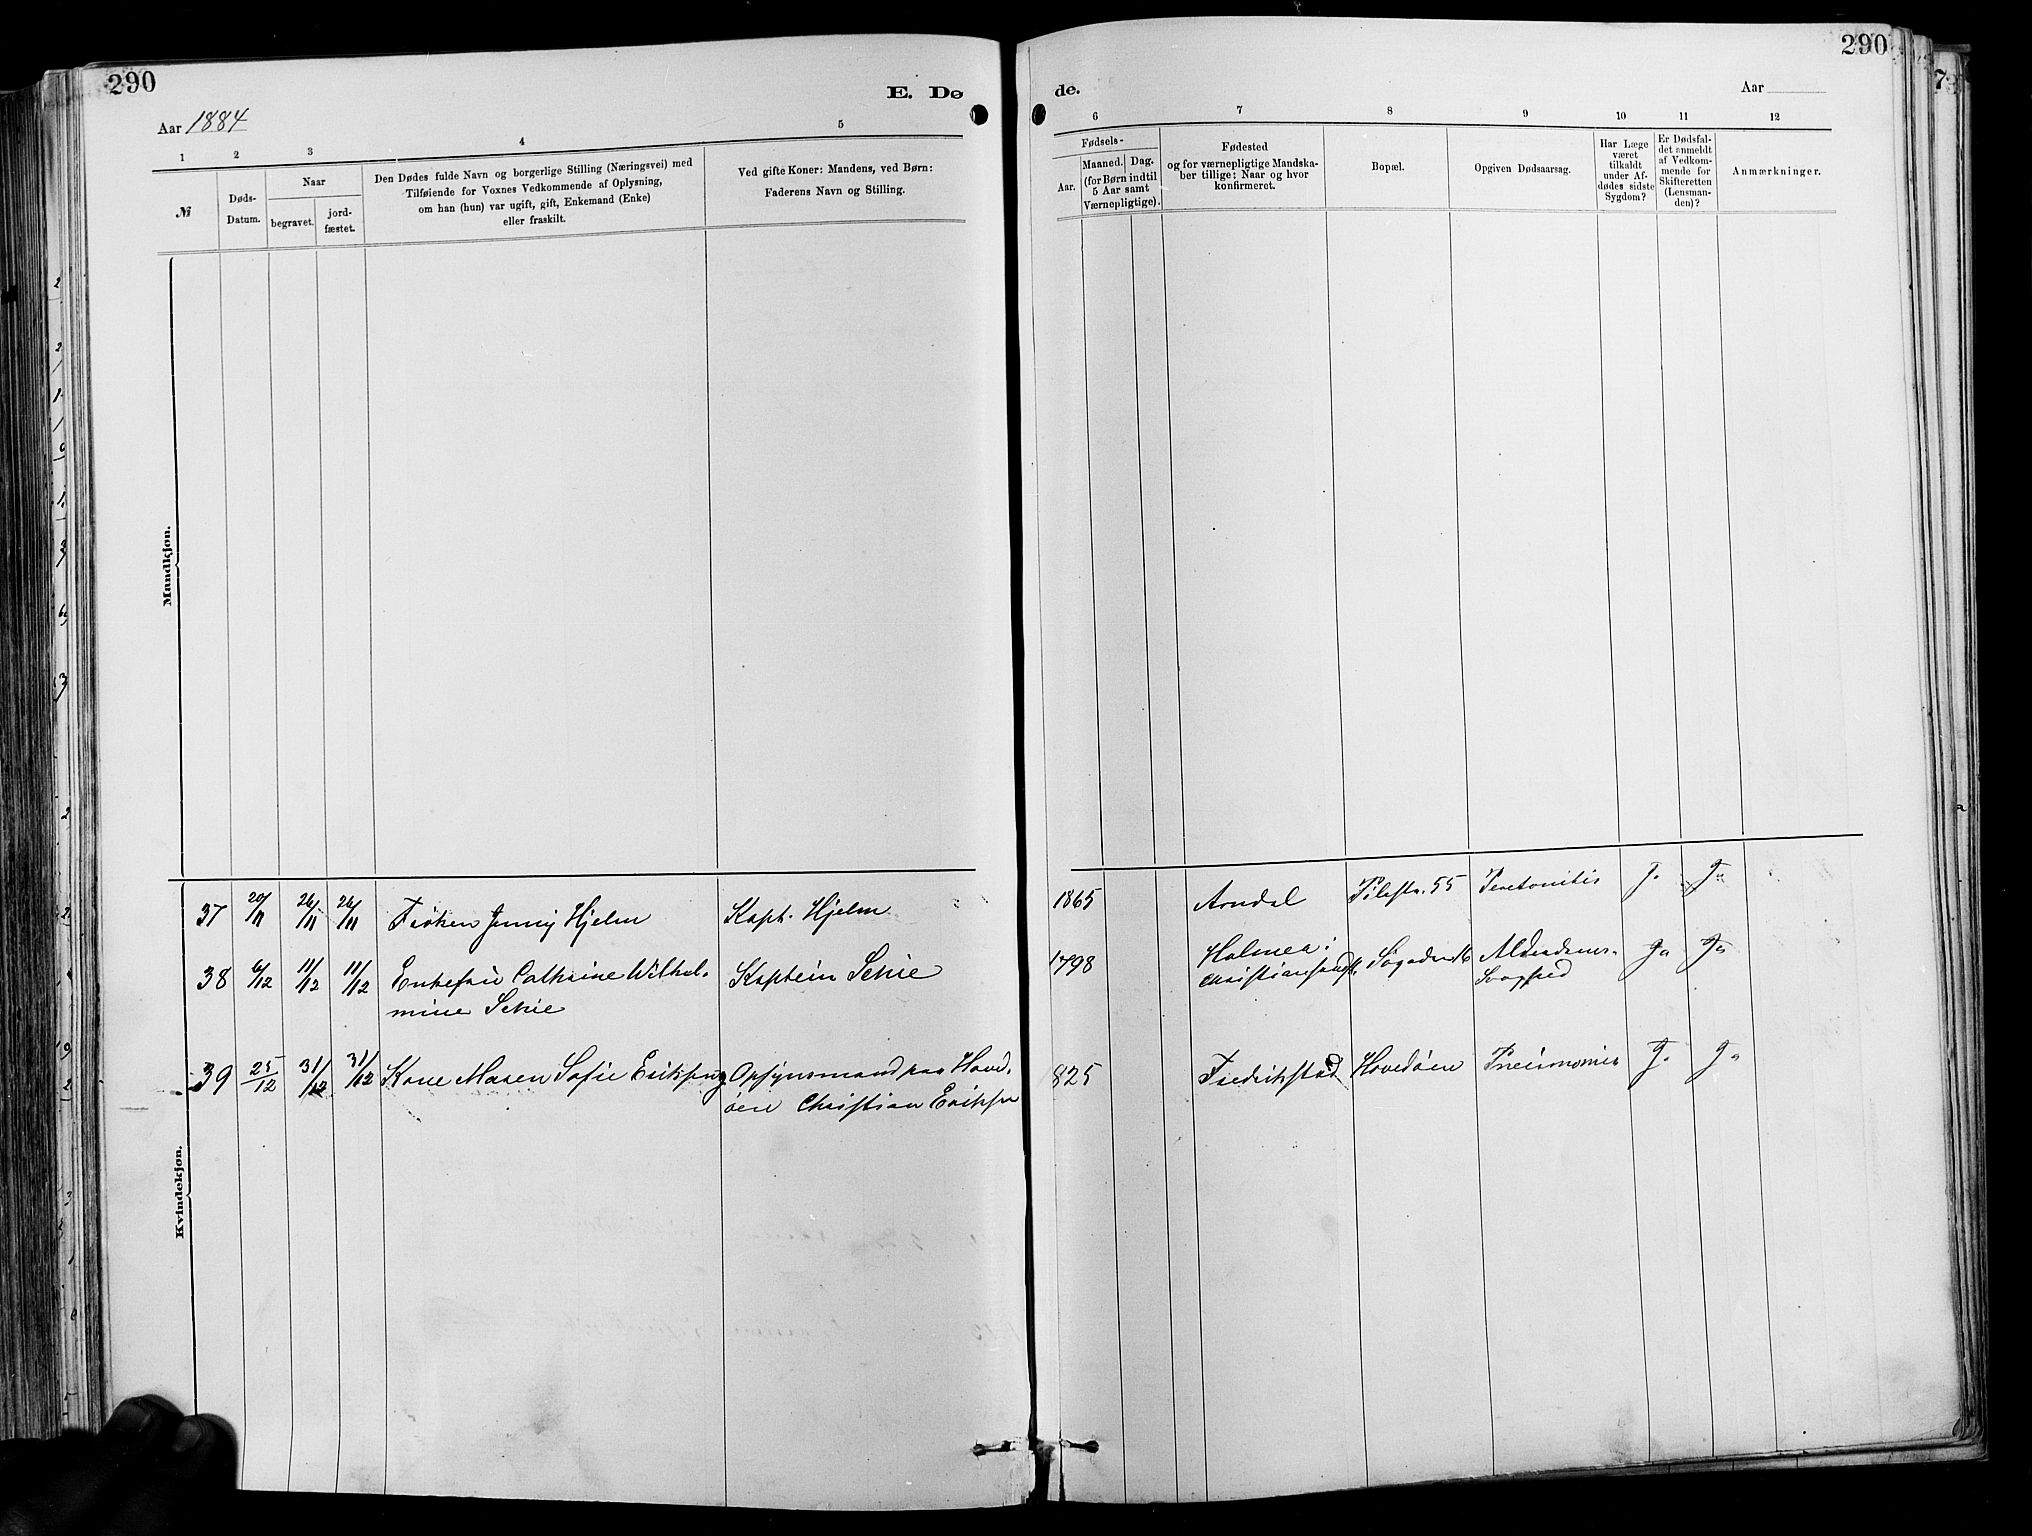 290
E. Dø
Aar 1884
1 2 3 4 5
№
Døds-
Datum.
Naar
begravet.
jord-
fæstet.
Den Dødes fulde Navn og borgerlige Stilling (Næringsvei) med
Tilføiende for Voxnes Vedkommende af Oplysning,
om han (hun) var ugift, gift, Enkemand (Enke)
eller fraskilt.
Ved gifte Koner: Mandens, ved Børn:
Faderens Navn og Stilling.
Mandkjøn.
37 20/11 26/11 26/11 Frøken Jenny Hjelm Kapt. Hjelm
38 6/12 11/12 11/12 Enkefru Cathrine Wilhel-
mine Schie
Kaptein Schie
39 25/12 31/12 31/12 Kone Maren Sofie Eriksen
Opsynsmand paa Hoved-
øen Christian Eriksen
Kvindekjøn.
290
de.
Aar
6 7 8 9 10 11 12
Fødsels-
Aar.
Maaned. Dag.
(for Børn indtil
5 Aar samt
Værnepligtige).
Fødested
og for værnepligtige Mandska-
ber tillige: Naar og hvor
konfirmeret.
Bopæl.
Opgiven Dødsaarsag.
Har Læge
været
tilkaldt
under Af-
dødes sidste
Sygdom?
Er Dødsfal-
det anmeldt
af Vedkom-
mende for
Skifteretten
(Lensman-
den)?
Anmærkninger.
1865 Arndal Pilestr. 55 Peretonitis J. Ja
1798 Holmen i
Christiansand
Alderdoms-
Svaghed
Ja Ja
825 Fredrikstad Hovedøen Pneumonie J. Ja
7